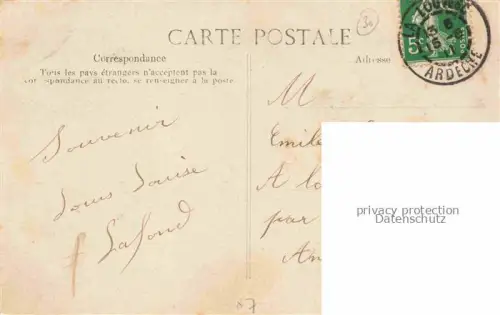 CARTE POSTALE
Correspondance
Tous les pays étrangers n'acceptent pas la
correspondance au recto, se renseigner à la poste
Adresse
30
5
ARDECHE
M
Emile
A la
par
An
Souvenir
Louise
Lafond
privacy protection
Datenschutz
07